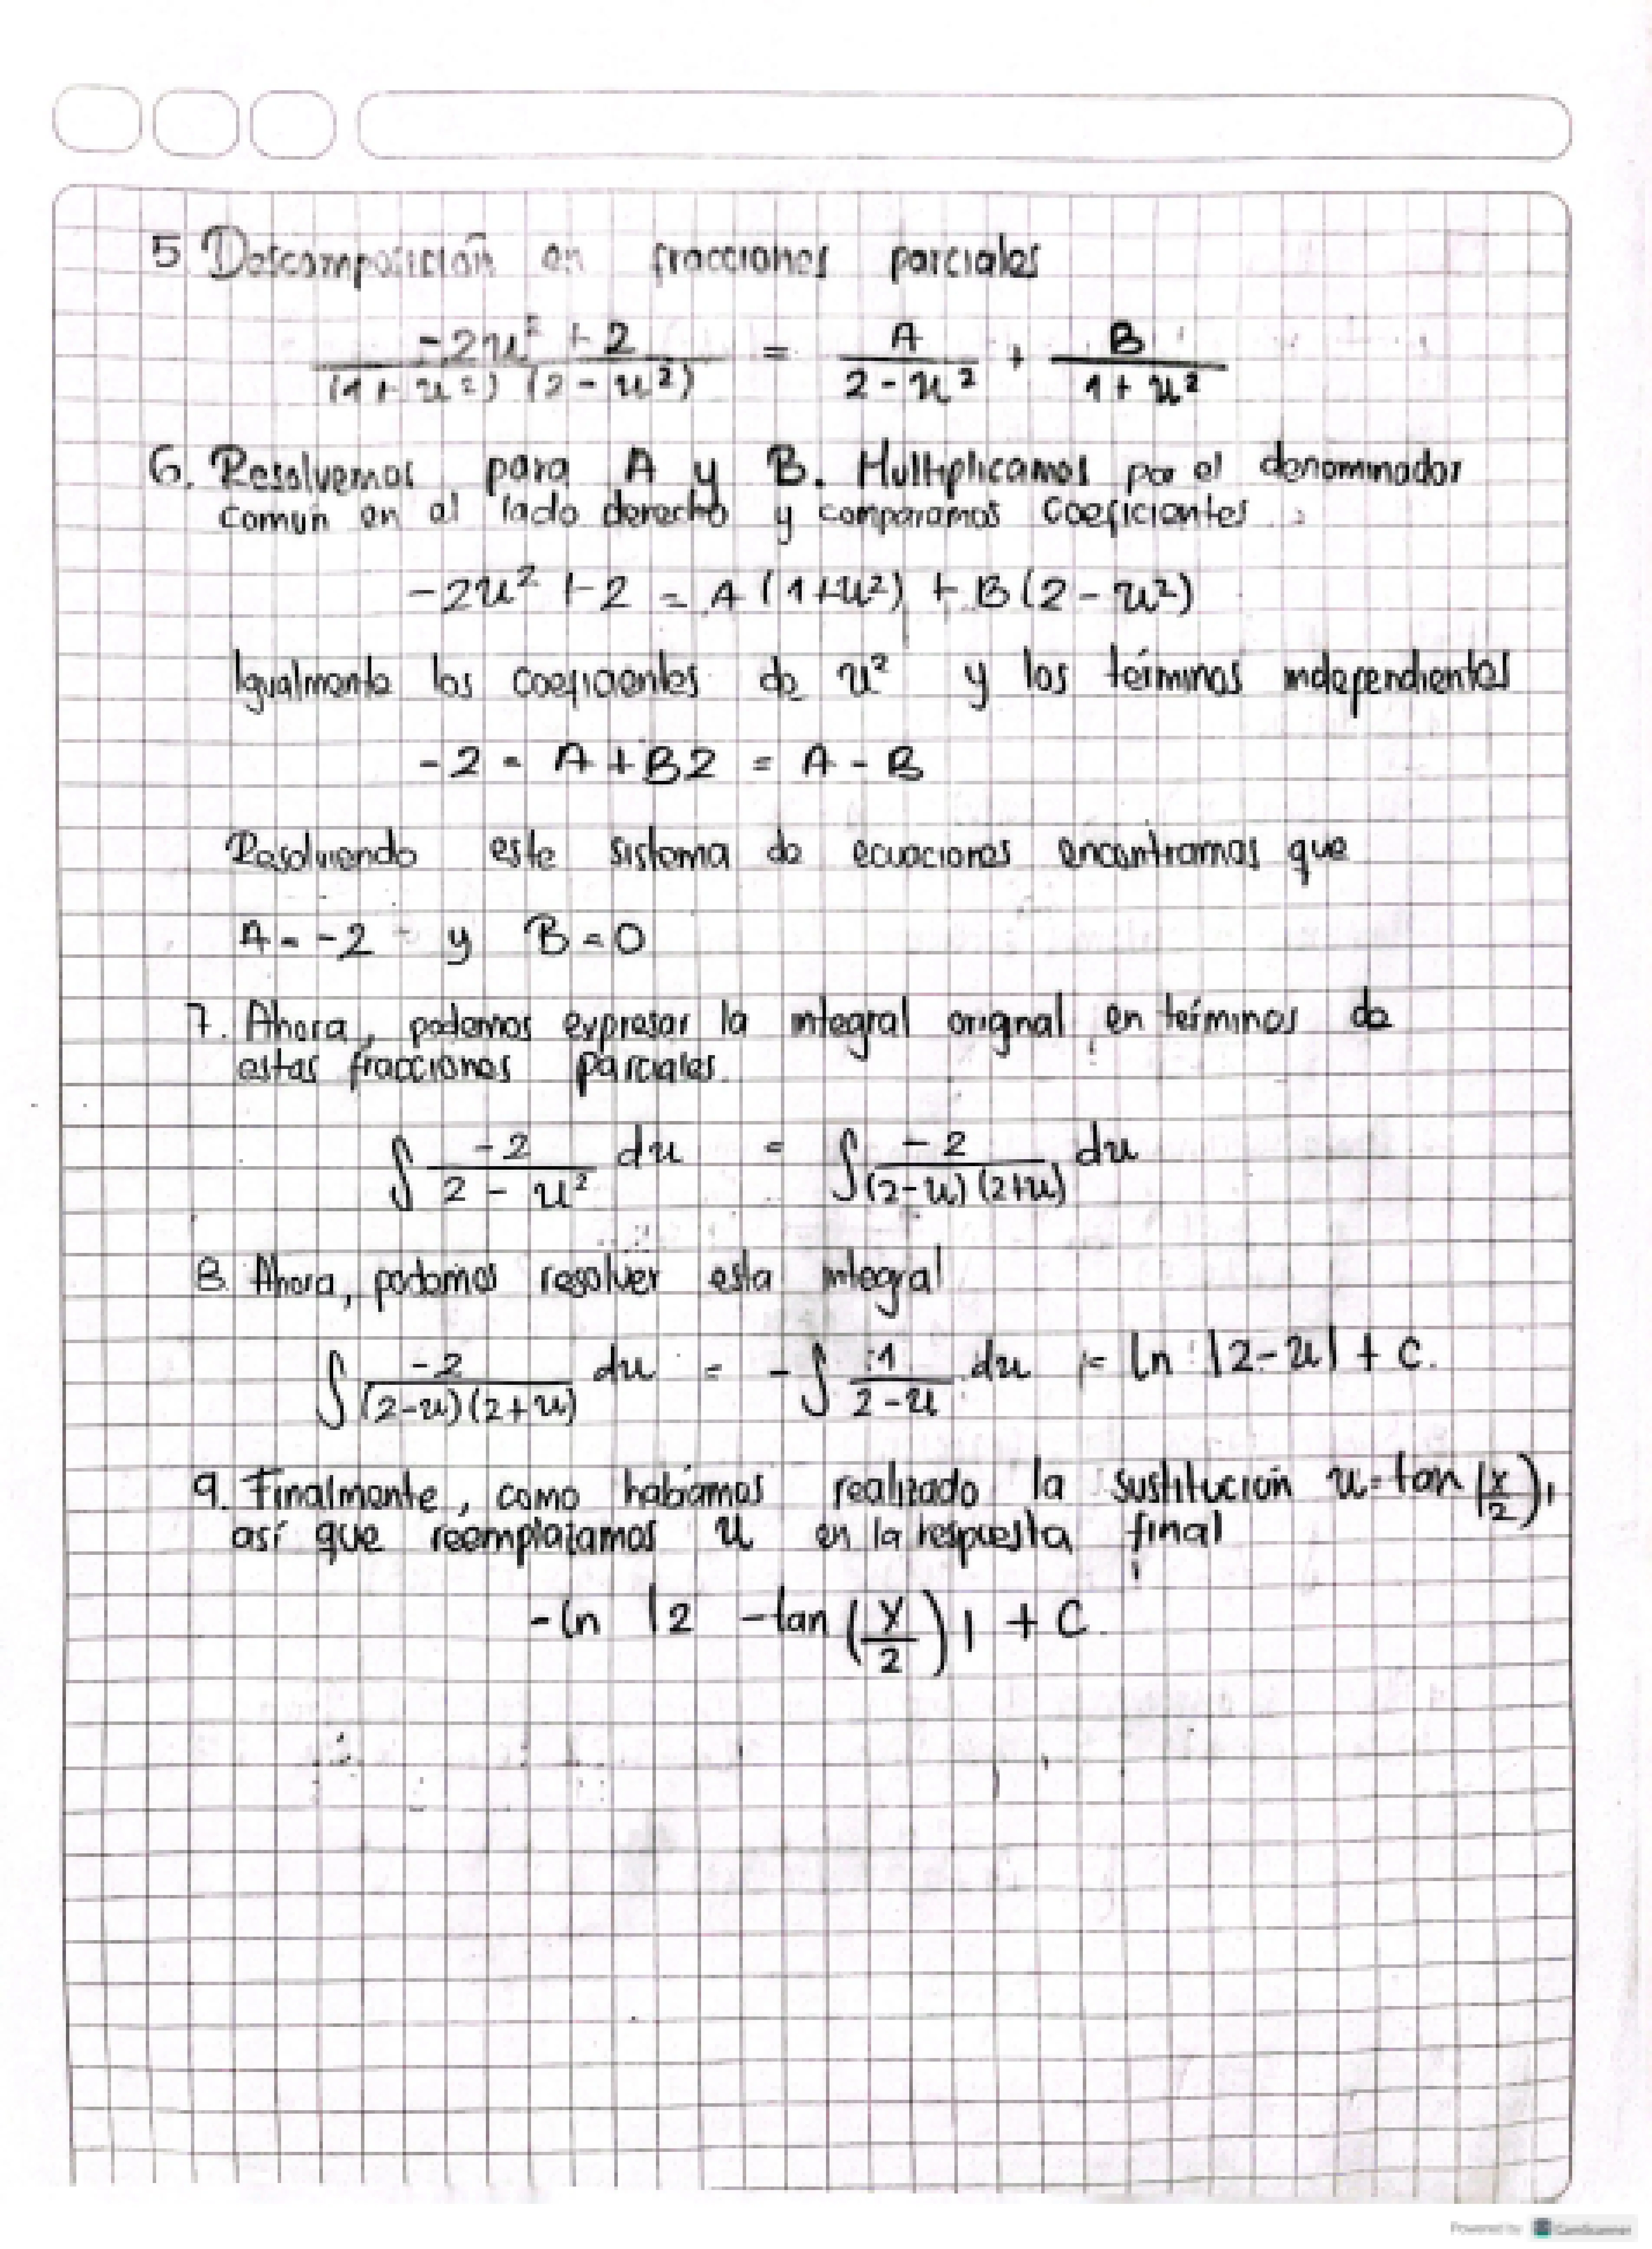 5 Descomposición en fracciones parciales
-2u² + 2 / (1 + u²) (2 - u²) = A / 2 - u² + B / 1 + u²
6. Resolvemos para A y B. Multiplicamos por el denominador
comun en el lado derecho y comparamos coeficientes :
-2u² + 2 = A (1+u²) + B (2 - u²)
Igualmente los coeficientes de u² y los términos independientes
-2 = A + B2 = A - B
Resolviendo este sistema de ecuaciones encontramos que
A = -2 y B = 0
7. Ahora, podemos expresar la integral original en términos de
estas fracciones parciales.
∫ -2 / 2 - u² du = ∫ -2 / (2-u) (2+u) du
8. Ahora, podemos resolver esta integral
∫ -2 / (2-u) (2+u) du = - ∫ 1 / 2 - u du = ln |2-u| + C.
9. Finalmente, como habíamos realizado la sustitución u = tan (x/2),
así que reemplazamos u en la respuesta final
-ln |2 - tan (x/2)| + C.
Powered by CamScanner